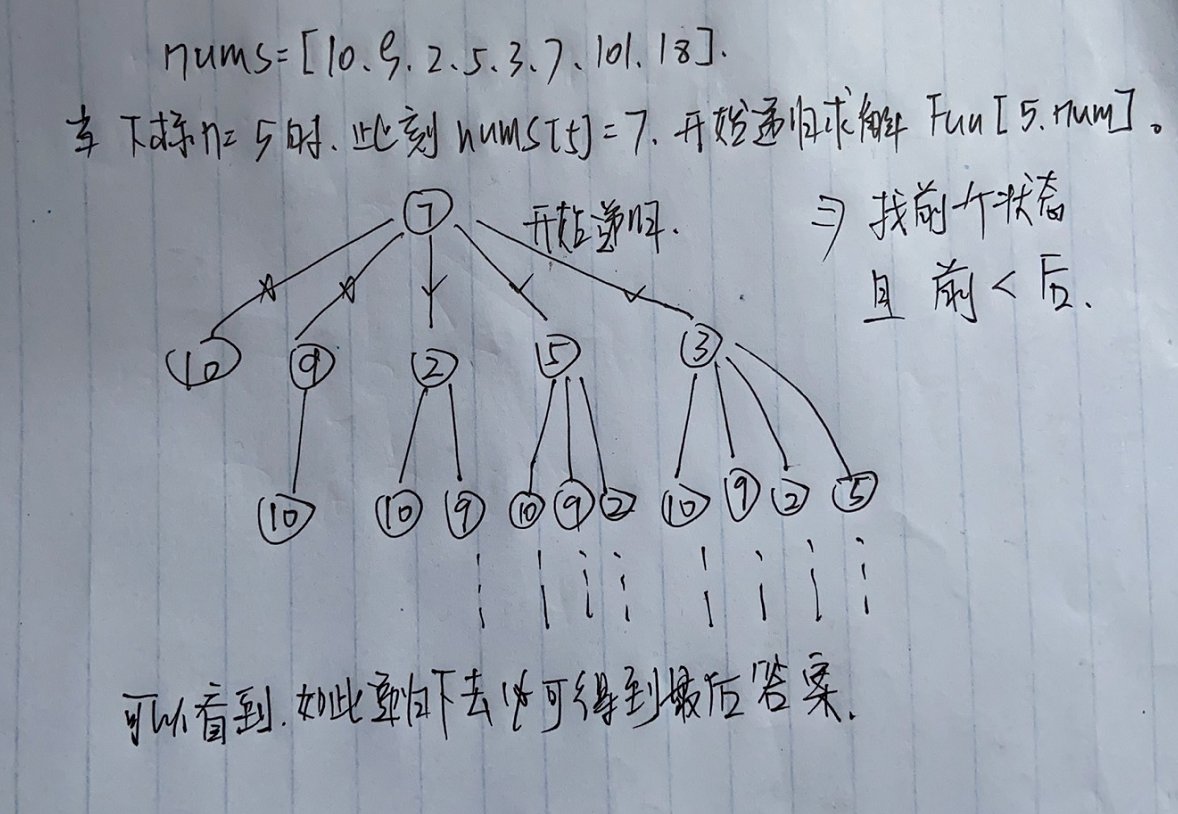 nums=[10、9、2、5、3、7、101、18].
当下标n=5时.此刻nums[5]=7.开始递归求解Fun[5.num]。
7 开始递归. ⇒ 找前一个状态
且 前<后.
10 9 2 5 3
10 10 9 10 9 2 10 9 2 5
可以看到.如此递归下去必可得到最后答案.